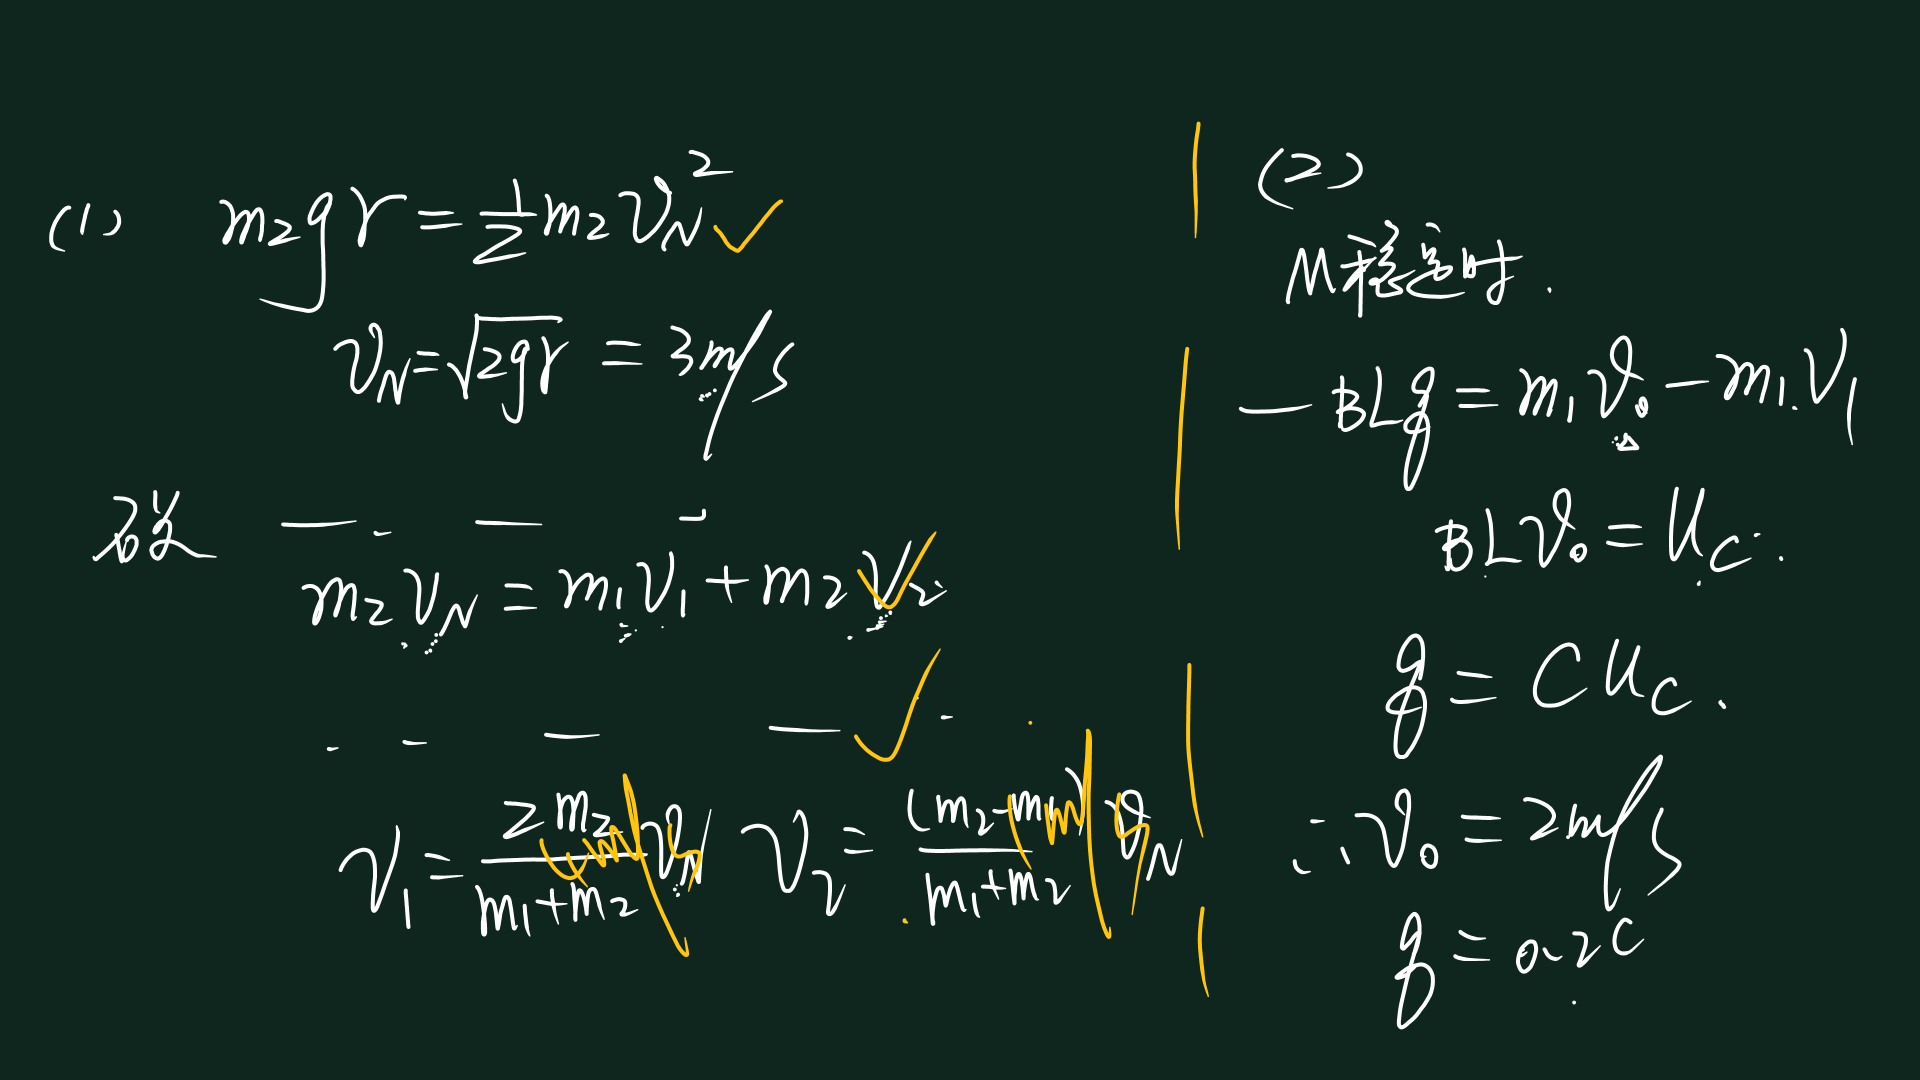 (1) m₂gr = ½m₂v_N² ✓
v_N = √2gr = 3m/s
m₂v_N = m₁v₁ + m₂v₂ ✓
✓
v₁ = 2m₂/(m₁+m₂) v_N v₂ = (m₂-m₁)/(m₁+m₂) v_N
(2)
M稳定时.
-BLq = m₁v₀ - m₁v₁
BLv₀ = U_C.
q = CU_C.
∴ v₀ = 2m/s
q = 0.2C